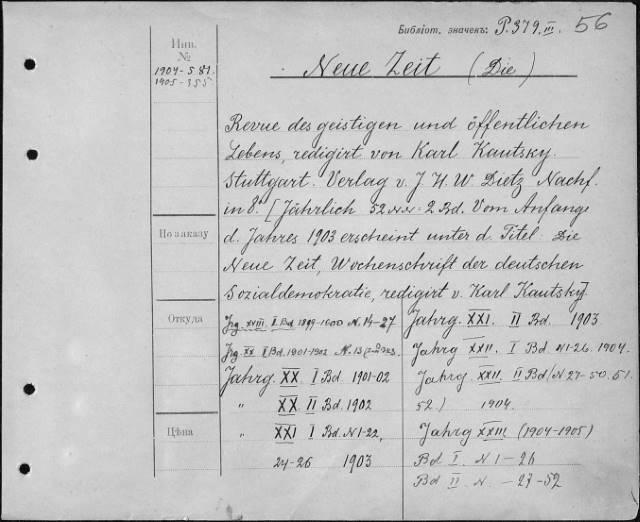 Библіот. значекъ: P.379.III. 56
Инв. №
1904-5.81.
1905-355
Neue Zeit (Die)
Revue des geistigen und öffentlichen
Lebens, redigirt von Karl Kautsky.
Stuttgart. Verlag v. J. H. W. Dietz Nachf.
in 8°. [Jährlich 52 N.N. 2 Bd. Vom Anfange
По заказу
d. Jahres 1903 erscheint unter d. Titel: Die
Neue Zeit, Wochenschrift der deutschen
Sozialdemokratie, redigirt v. Karl Kautsky].
Откуда
Jrg. XVIII. I. Bd. 1899-1900 N. 14-27
Jrg. XX I Bd. 1901-1902 N. 13
Jahrg. XX I Bd. 1901-02
" XX II Bd. 1902
Цѣна
" XXI I Bd. N 1-22,
24-26 1903
Jahrg. XXI. II Bd. 1903
Jahrg XXII. I Bd. N 1-26. 1904.
Jahrg XXII. II Bd. (N 27-50. 51.
52.) 1904.
Jahrg XXIII (1904-1905)
Bd I. N 1-26
Bd II. N. -27-52